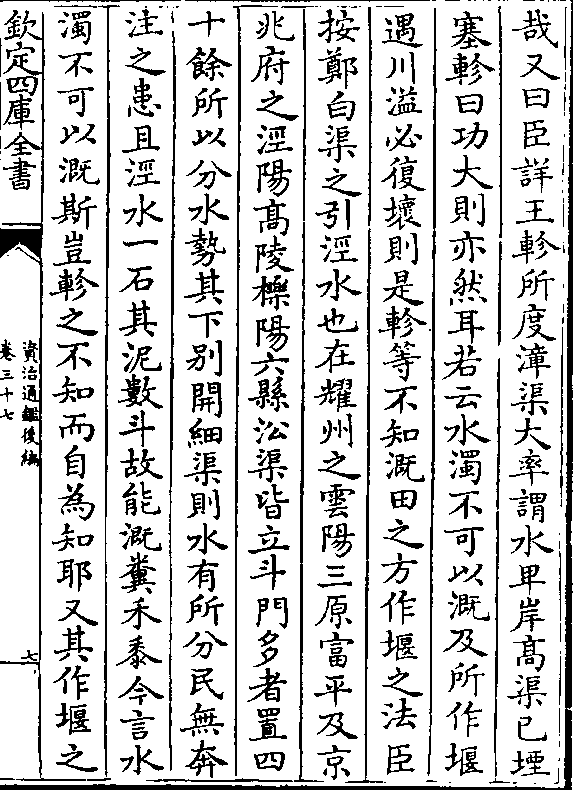 哉又曰臣詳王軫所度漳渠大率謂水卑岸高渠已堙
塞軫曰功大則亦然耳若云水濁不可以溉及所作堰
遇川濫必復壞則是軫等不知溉田之方作堰之法臣
按鄭白渠之引涇水也在耀州之雲陽三原富平及京
兆府之涇陽高陵櫟陽六縣沿渠皆立斗門多者置四
十餘所以分水勢其下别開細渠則水有所分民無奔
注之患且涇水一石其泥數斗故能溉糞禾黍今言水
濁不可以溉斯豈軫之不知而自為知耶又其作堰之
欽定四庫全書
資治通鑑後編
卷三十七
七